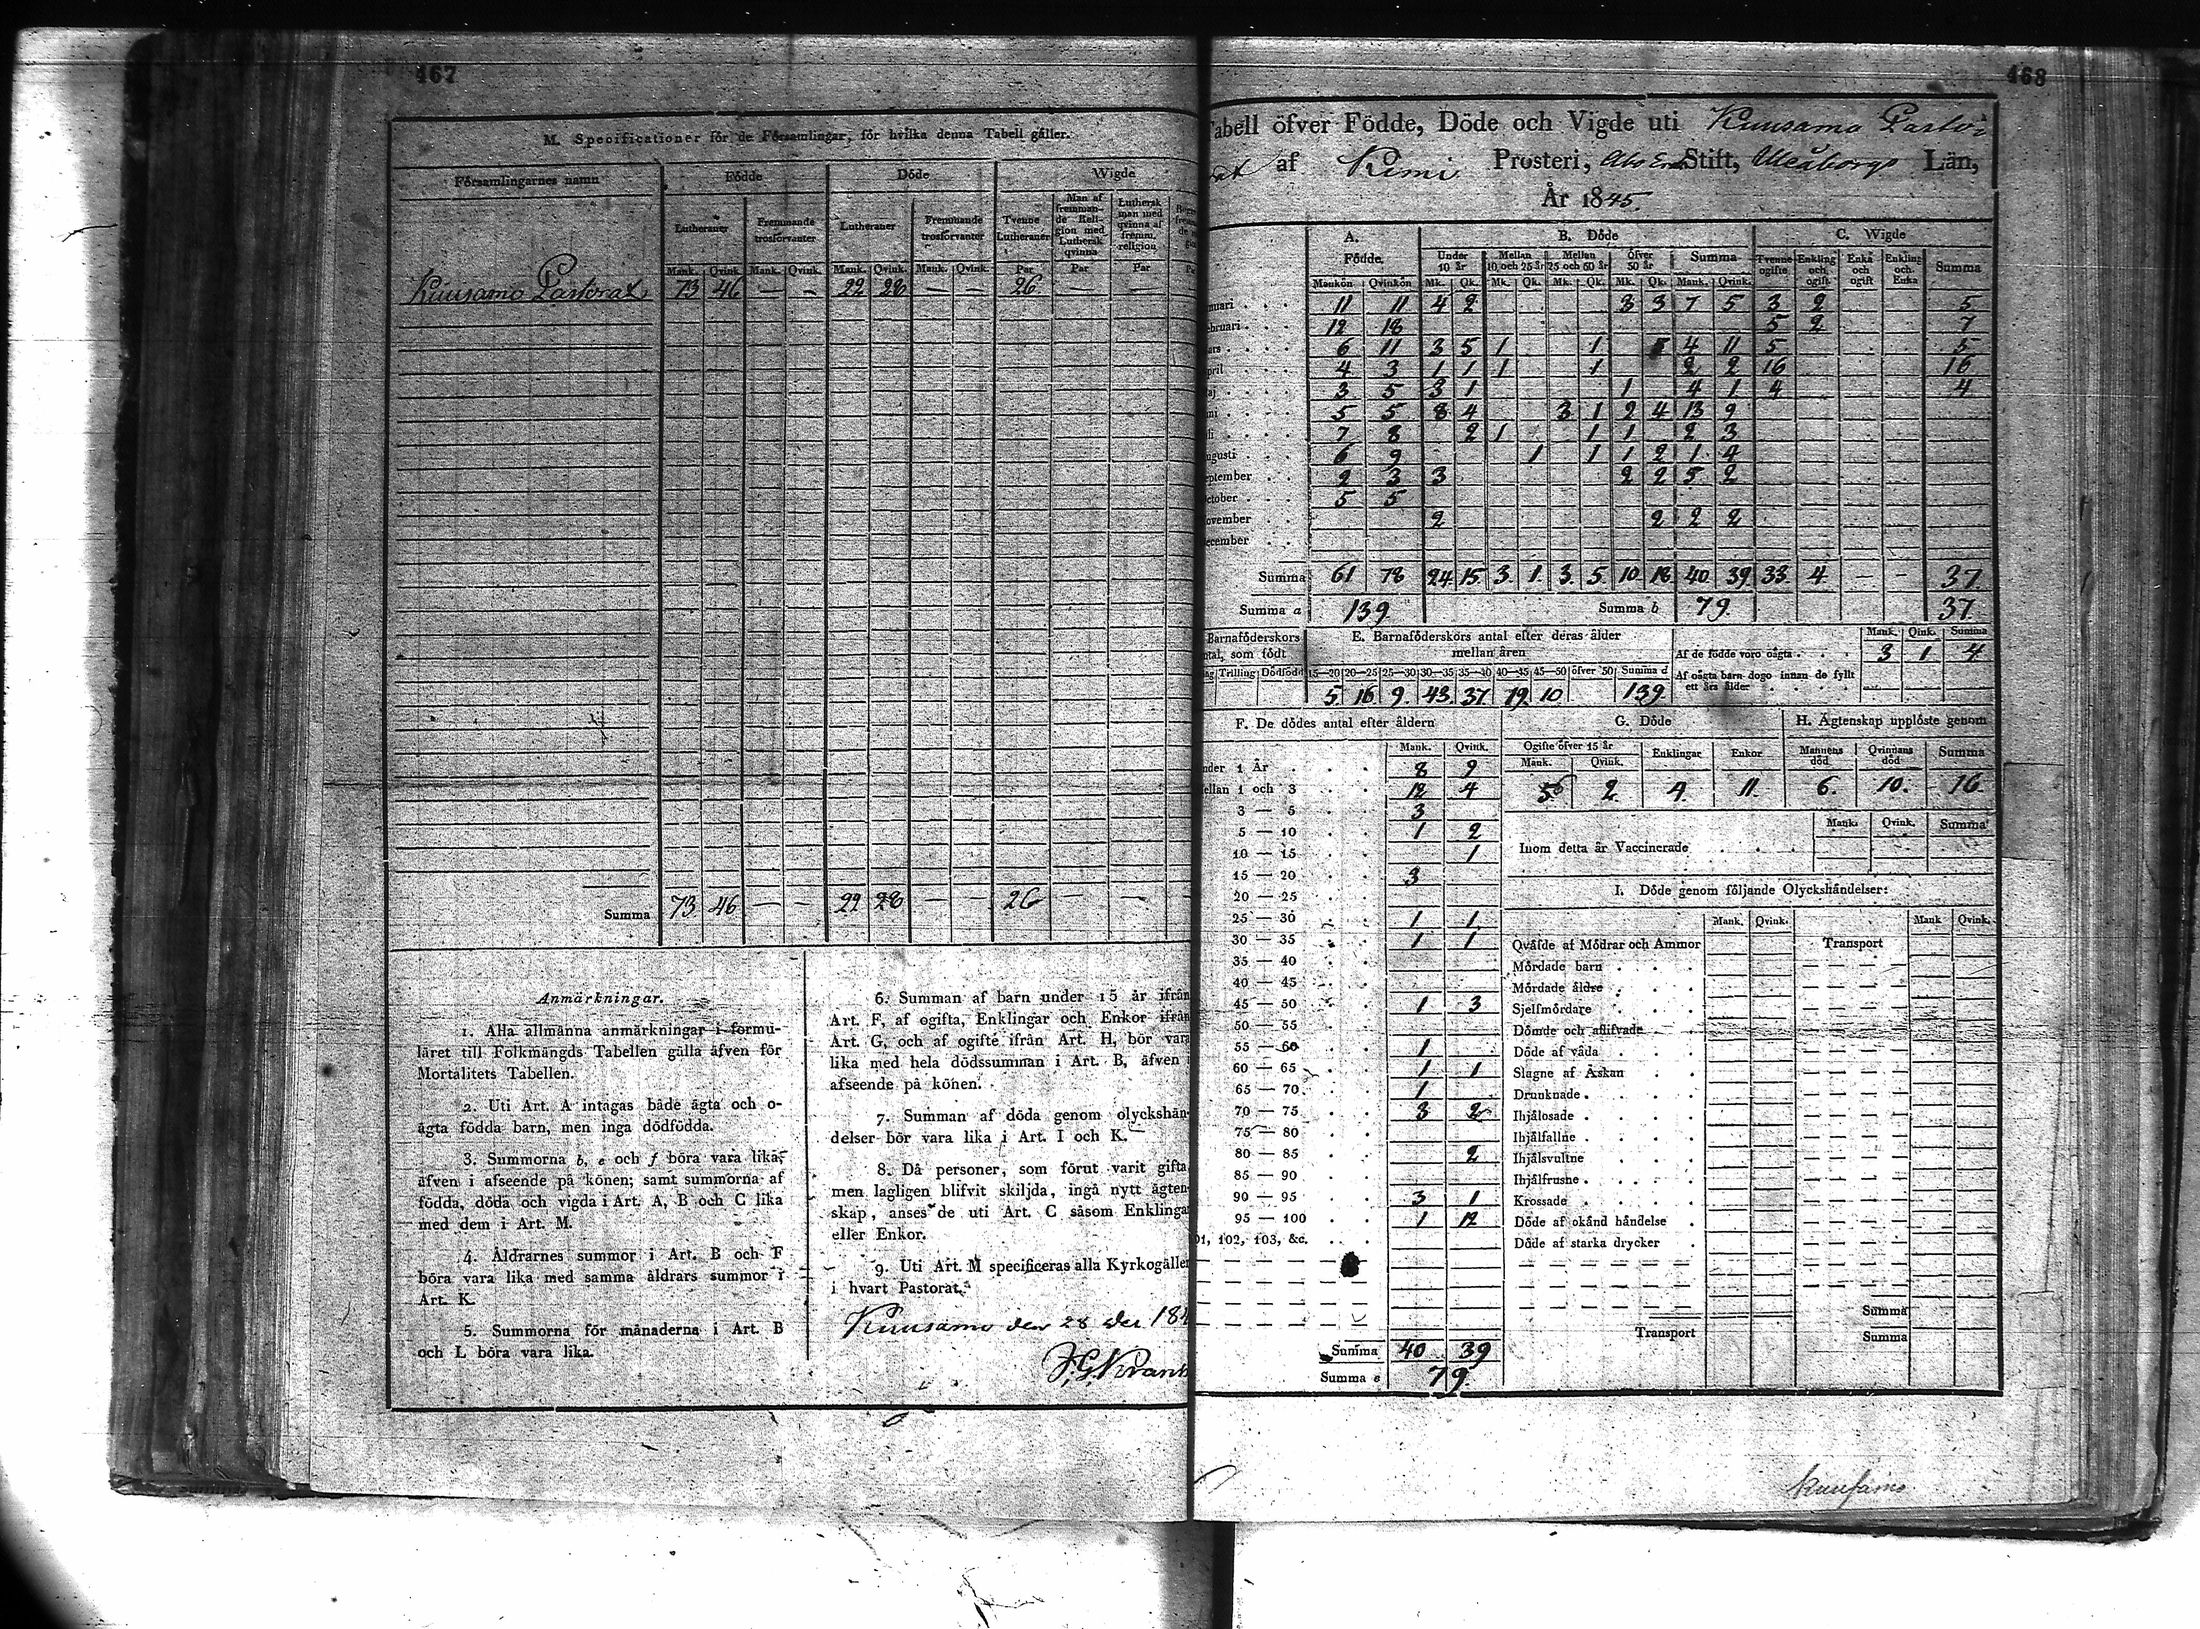 467
M. Specificationer för de Församlingar, för hvilka denna Tabell gäller.
Församlingarnes namn | Födde | Döde | Wigde
Lutheraner | Fremmande trosförvanter | Lutheraner | Fremmande trosförvanter | Tvenne Lutheraner | Man af fremmande Religion med Luthersk qvinna | Luthersk man med qvinna af fremm. religion
Mank. | Qvink. | Mank. | Qvink. | Mank. | Qvink. | Mank. | Qvink. | Par | Par | Par
Kuusamo Pastorat | 73 | 46 | — | — | 22 | 28 | — | — | 26 | — | —
Summa | 73 | 46 | — | — | 22 | 28 | — | — | 26 | — | —
Anmärkningar.
1. Alla allmänna anmärkningar i formu-
läret till Folkmängds Tabellen gälla äfven för
Mortalitets Tabellen.
2. Uti Art. A intagas både ägta och o-
ägta födda barn, men inga dödfödda.
3. Summorna b, e och f böra vara lika,
äfven i afseende på könen; samt summorna af
födda, döda och vigda i Art. A, B och C lika
med dem i Art. M.
4. Åldrarnes summor i Art. B och F
böra vara lika med samma åldrars summor i
Art. K.
5. Summorna för månaderna i Art. B
och L böra vara lika.
6. Summan af barn under 15 år ifrån
Art. F, af ogifta, Enklingar och Enkor ifrån
Art. G, och af ogifte ifrån Art. H, bör vara
lika med hela dödssumman i Art. B, äfven i
afseende på könen.
7. Summan af döda genom olyckshän-
delser bör vara lika i Art. I och K.
8. Då personer, som förut varit gifta
men lagligen blifvit skiljda, ingå nytt ägten-
skap, anses de uti Art. C såsom Enklinga
eller Enkor.
9. Uti Art. M specificeras alla Kyrkogäller
i hvart Pastorat.
Kuusamo den 28 184
468
Tabell öfver Födde, Döde och Vigde uti Kuusamo Pasto-
rat af Kemi Prosteri, Åbo Stift, Uleåborgs Län,
År 1845.
A. Födde. | B. Döde | C. Wigde
Under 10 år | Mellan 10 och 25 år | Mellan 25 och 50 år | Öfver 50 år | Summa | Tvenne ogifte | Enkling och ogift | Enka och ogift | Enkling och Enka | Summa
Mankön | Qvinkön | Mk. | Qk. | Mk. | Qk. | Mk. | Qk. | Mk. | Qk. | Mank. | Qvink.
nuari | 11 | 11 | 4 | 2 | 3 | 3 | 7 | 5 | 3 | 2 | 5
ebruari | 12 | 18 | 5 | 2 | 7
ars | 6 | 11 | 3 | 5 | 1 | 1 | 5 | 4 | 11 | 5 | 5
pril | 4 | 3 | 1 | 1 | 1 | 1 | 2 | 2 | 16 | 16
aj | 3 | 5 | 3 | 1 | 1 | 4 | 1 | 4 | 4
ni | 5 | 5 | 8 | 4 | 3 | 1 | 2 | 4 | 13 | 9
li | 7 | 8 | 2 | 1 | 1 | 1 | 2 | 3
ugusti | 6 | 9 | 1 | 1 | 1 | 2 | 1 | 4
eptember | 2 | 3 | 3 | 2 | 2 | 5 | 2
ctober | 5 | 5
ovember | 2 | 2 | 2 | 2
ecember
Summa | 61 | 78 | 24 | 15 | 3. | 1. | 3. | 5. | 10 | 18 | 40 | 39 | 33 | 4 | — | — | 37.
Summa a | 139. | Summa b | 79. | 37.
Barnaföderskors | E. Barnaföderskors antal efter deras ålder
ntal, som födt | mellan åren
Trilling | Dödfödd | 15—20 | 20—25 | 25—30 | 30—35 | 35—40 | 40—45 | 45—50 | öfver 50 | Summa d
5 | 16 | 9. | 43. | 37. | 19. | 10 | 139
Mank. | Qink. | Summa
Af de födde voro oägta | 3 | 1 | 4
Af oägta barn dogo innan de fyllt
ett års ålder
F. De dödes antal efter åldern
Mank. | Qvink.
nder 1 År | 8 | 9
ellan 1 och 3 | 12 | 4
3 — 5 | 3
5 — 10 | 1 | 2
10 — 15 | 1
15 — 20 | 3
20 — 25
25 — 30 | 1 | 1
30 — 35 | 1 | 1
35 — 40
40 — 45
45 — 50 | 1 | 3
50 — 55
55 — 60 | 1
60 — 65 | 1 | 1
65 — 70 | 1
70 — 75 | 3 | 2
75 — 80
80 — 85 | 2
85 — 90
90 — 95 | 3 | 1
95 — 100 | 1 | 12
01, 102, 103, &c.
Summa | 40 | 39
Summa e | 79.
G. Döde
Ogifte öfver 15 år | Enklingar | Enkor
Mank. | Qvink.
2 | 4. | 11.
H. Ägtenskap upplöste genom
Mannens död | Qvinnans död | Summa
6. | 10. | 16
Mank. | Qvink. | Summa
Inom detta år Vaccinerade
I. Döde genom följande Olyckshändelser:
Mank. | Qvink. | Mank | Qvink.
Qväfde af Mödrar och Ammor | Transport
Mördade barn
Mördade äldre
Sjelfmördare
Dömde och aflifvade
Döde af våda
Slagne af Åskan
Drunknade
Ihjälosade
Ihjälfallne
Ihjälsvultne
Ihjälfrusne
Krossade
Döde af okänd händelse
Döde af starka drycker
Summa
Transport | Summa
Kuusamo